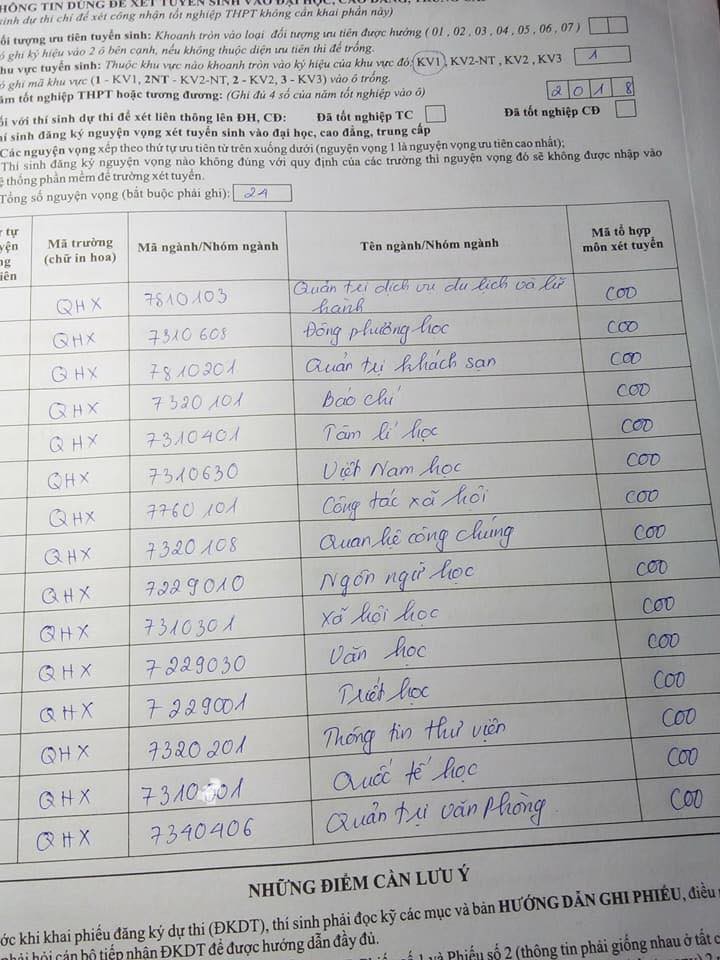 HÔNG TIN DÙNG ĐỂ XÉT TUYỂN SINH VÀO ĐẠI HỌC, CAO ĐẲNG, TRUNG
sinh dự thi chỉ để xét công nhận tốt nghiệp THPT không cần khai phần này)
ối tượng ưu tiên tuyển sinh: Khoanh tròn vào loại đối tượng ưu tiên được hưởng ( 01 , 02 , 03 , 04 , 05 , 06 , 07 )
ó ghi ký hiệu vào 2 ô bên cạnh, nếu không thuộc diện ưu tiên thì để trống.
hu vực tuyển sinh: Thuộc khu vực nào khoanh tròn vào ký hiệu của khu vực đó; KV1, KV2-NT , KV2 , KV3 1
ó ghi mã khu vực (1 - KV1, 2NT - KV2-NT, 2 - KV2, 3 - KV3) vào ô trống.
ăm tốt nghiệp THPT hoặc tương đương: (Ghi đủ 4 số của năm tốt nghiệp vào ô) 2 0 1 8
ối với thí sinh dự thi để xét liên thông lên ĐH, CĐ: Đã tốt nghiệp TC Đã tốt nghiệp CĐ
hí sinh đăng ký nguyện vọng xét tuyển sinh vào đại học, cao đẳng, trung cấp
Các nguyện vọng xếp theo thứ tự ưu tiên từ trên xuống dưới (nguyện vọng 1 là nguyện vọng ưu tiên cao nhất);
Thí sinh đăng ký nguyện vọng nào không đúng với quy định của các trường thì nguyện vọng đó sẽ không được nhập vào
ệ thống phần mềm để trường xét tuyển.
Tổng số nguyện vọng (bắt buộc phải ghi): 21
ứ tự
yện
ng
iên
Mã trường
(chữ in hoa)
Mã ngành/Nhóm ngành
Tên ngành/Nhóm ngành
Mã tổ hợp
môn xét tuyển
QHX 7810103 Quản trị dịch vụ du lịch và lữ hành C00
QHX 7310608 Đông phương học C00
QHX 7810201 Quản trị khách sạn C00
QHX 7320101 Báo chí C00
QHX 7310401 Tâm lí học C00
QHX 7310630 Việt Nam học C00
QHX 7760101 Công tác xã hội C00
QHX 7320108 Quan hệ công chúng C00
QHX 7229010 Ngôn ngữ học C00
QHX 7310301 Xã hội học C00
QHX 7229030 Văn học C00
QHX 7229001 Triết học C00
QHX 7320201 Thông tin thư viện C00
QHX 7310601 Quốc tế học C00
QHX 7340406 Quản trị văn phòng C00
NHỮNG ĐIỂM CẦN LƯU Ý
ớc khi khai phiếu đăng ký dự thi (ĐKDT), thí sinh phải đọc kỹ các mục và bản HƯỚNG DẪN GHI PHIẾU, điều
phải hỏi cán bộ tiếp nhận ĐKDT để được hướng dẫn đầy đủ.
số 1 và Phiếu số 2 (thông tin phải giống nhau ở tất c